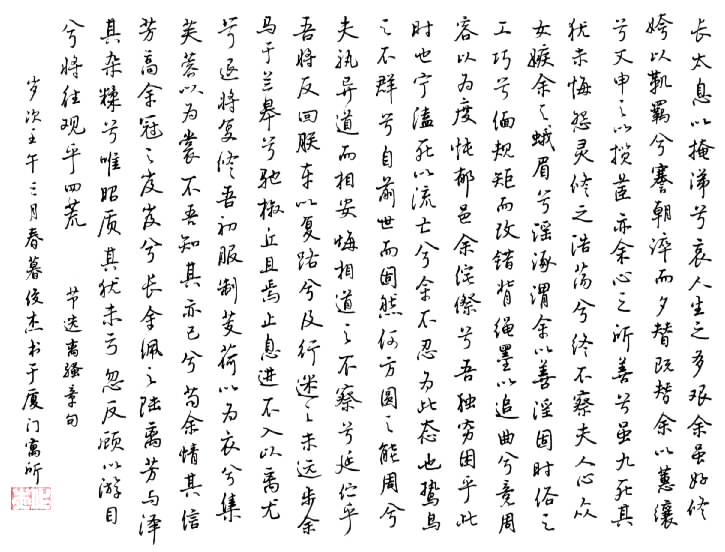 长太息以掩涕兮哀人生之多艰余虽好修
姱以鞿羁兮謇朝谇而夕替既替余以蕙纕
兮又申之以揽茝亦余心之所善兮虽九死其
犹未悔怨灵修之浩荡兮终不察夫人心众
女嫉余之蛾眉兮谣诼谓余以善淫固时俗之
工巧兮偭规矩而改错背绳墨以追曲兮竞周
容以为度忳郁邑余侘傺兮吾独穷困乎此
时也宁溘死以流亡兮余不忍为此态也鸷鸟
之不群兮自前世而固然何方圆之能周兮
夫孰异道而相安悔相道之不察兮延伫乎
吾将反回朕车以复路兮及行迷之未远步余
马于兰皋兮驰椒丘且焉止息进不入以离尤
兮退将复修吾初服制芰荷以为衣兮集
芙蓉以为裳不吾知其亦已兮苟余情其信
芳高余冠之岌岌兮长余佩之陆离芳与泽
其杂糅兮唯昭质其犹未亏忽反顾以游目
兮将往观乎四荒 节选离骚章句
岁次壬午三月春暮俊杰书于厦门寓所